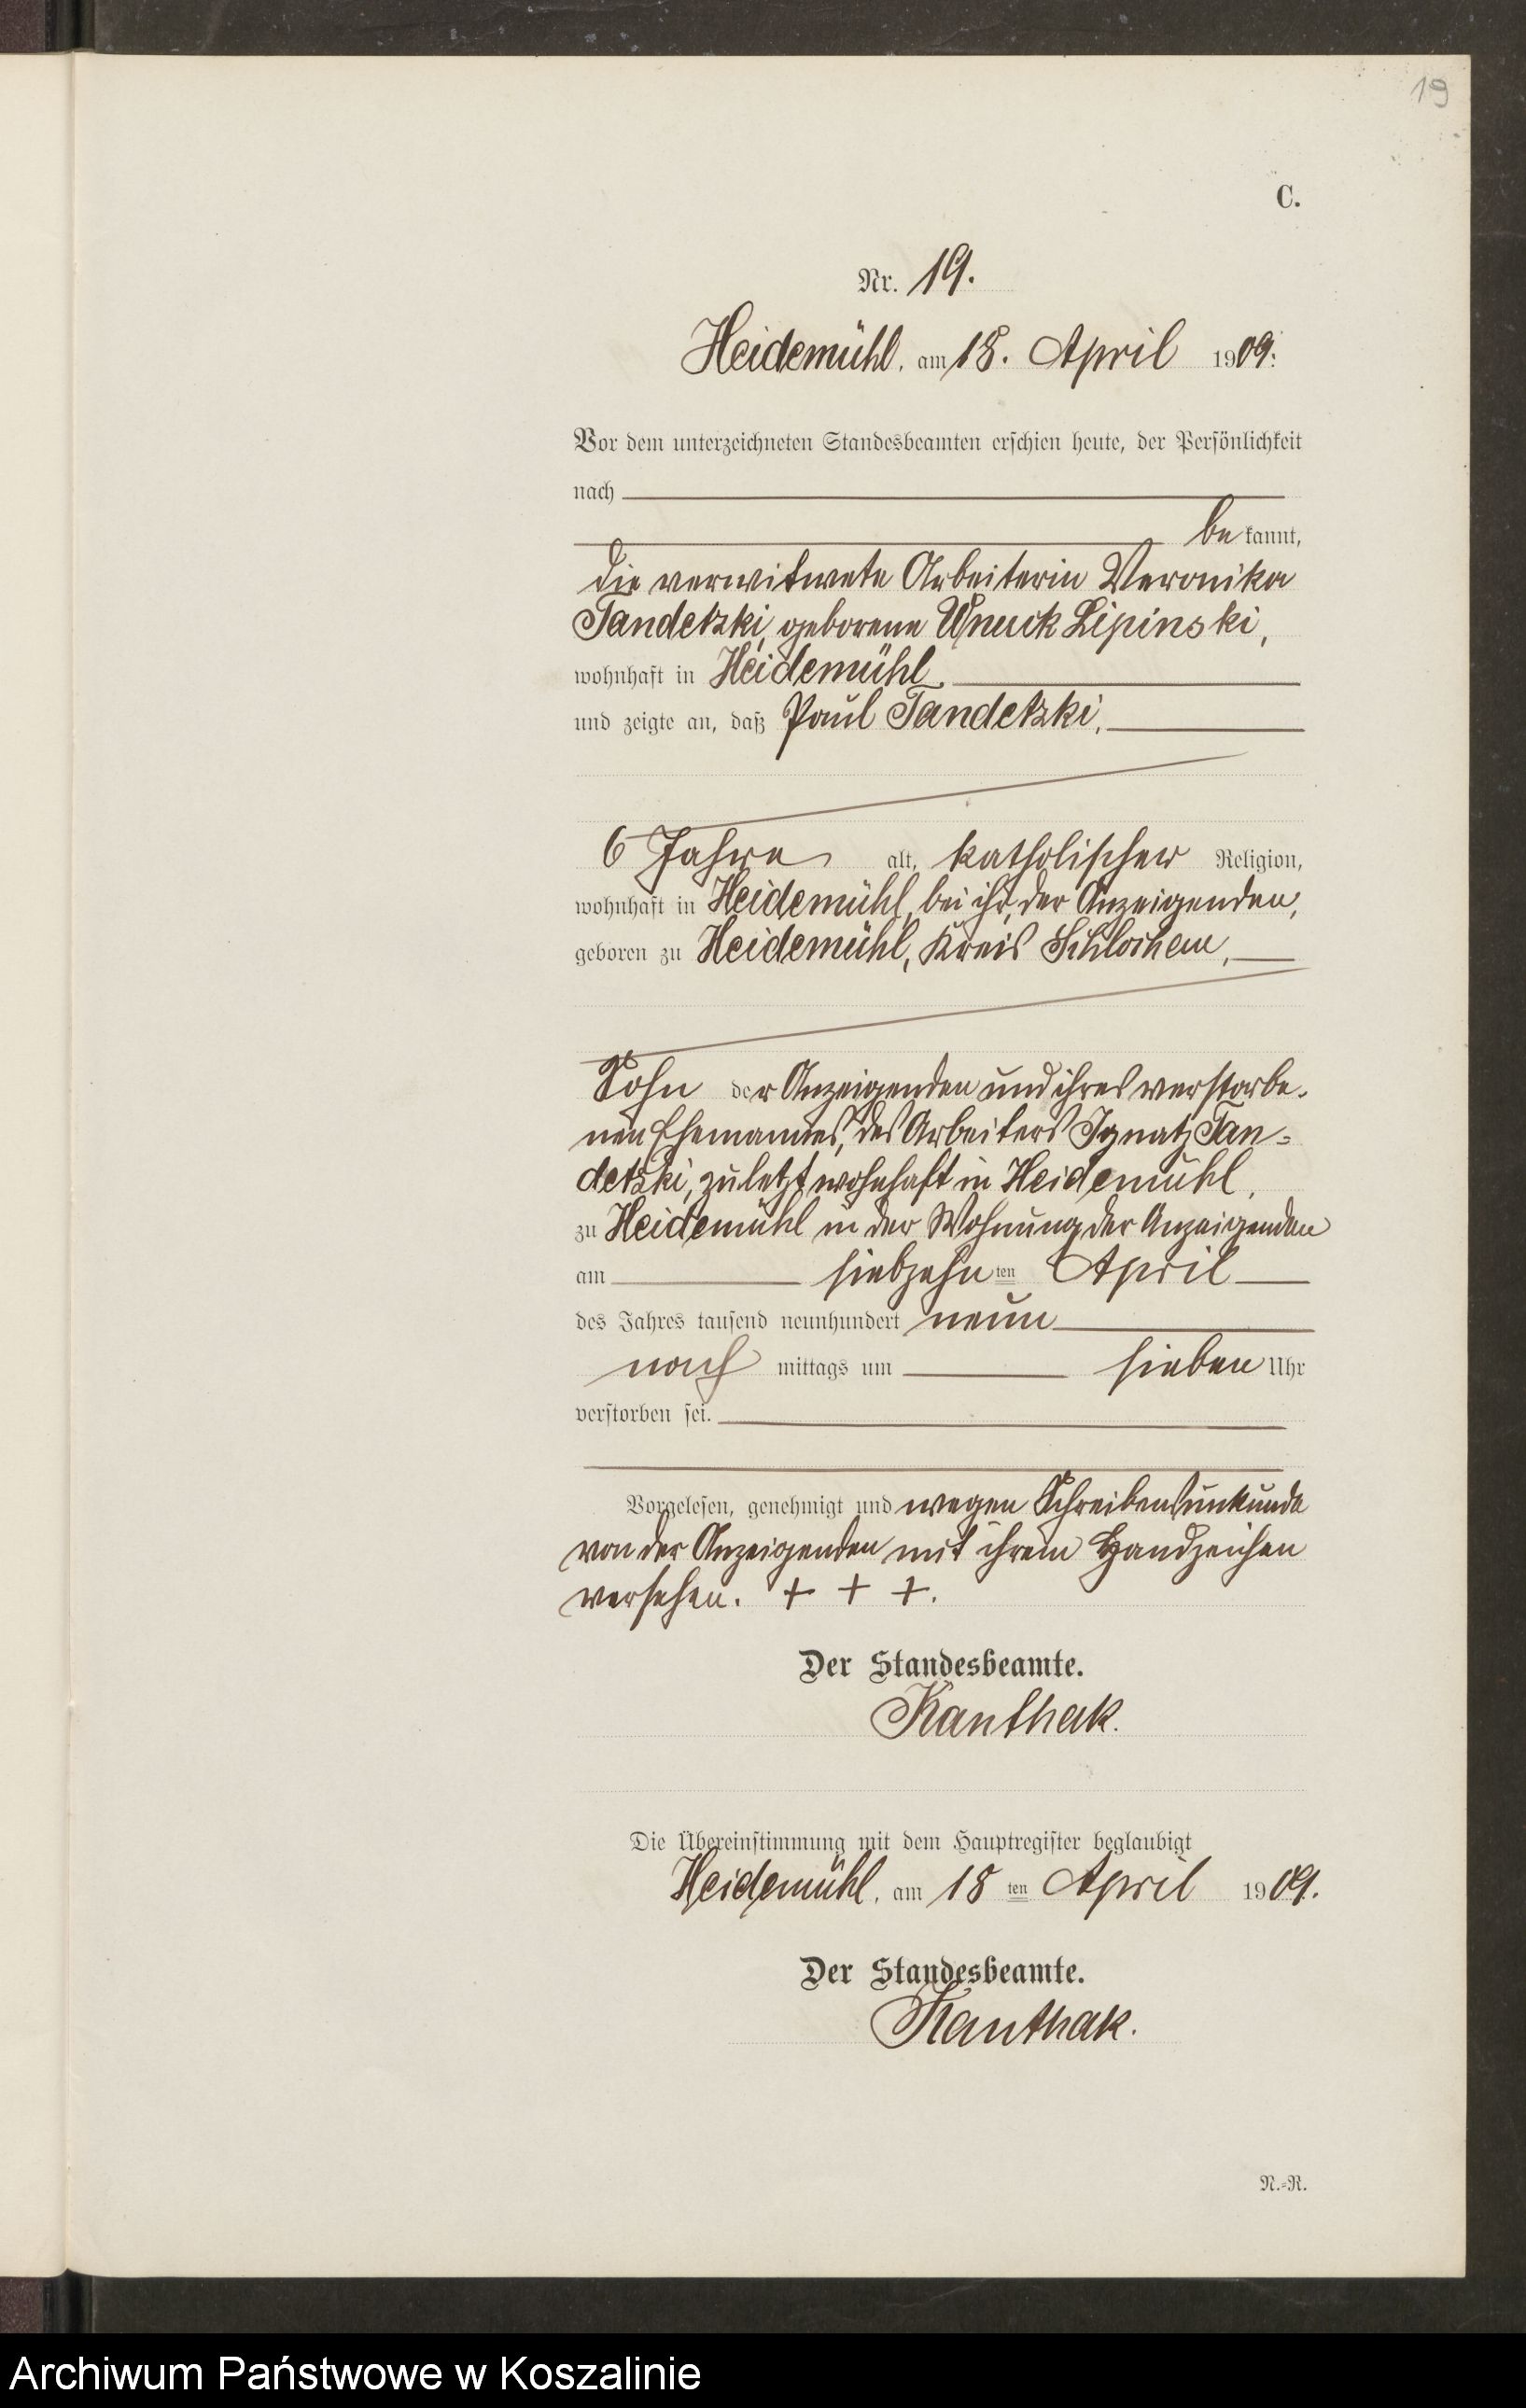 19
C.
Nr. 19.
Heidemühl, am 18. April 1909.
Vor dem unterzeichneten Standesbeamten erschien heute, der Persönlichkeit
nach
be kannt,
die verwitwete Arbeiterin Veronika
Tandetzki, geborene Wnuck Lipinski,
wohnhaft in Heidemühl,
und zeigte an, daß Paul Tandetzki,
6 Jahre alt, katholischer Religion,
wohnhaft in Heidemühl, bei ihr, der Anzeigenden,
geboren zu Heidemühl, Kreis Schlochau,
Sohn der Anzeigenden und ihres verstorbe-
nen Ehemannes, des Arbeiters Ignatz Tan-
detzki, zuletzt wohnhaft in Heidemühl,
zu Heidemühl in der Wohnung der Anzeigenden
am siebzehn ten April
des Jahres tausend neunhundert neun
nach mittags um sieben Uhr
verstorben sei.
Vorgelesen, genehmigt und wegen Schreibensunkunde
von der Anzeigenden mit ihrem Handzeichen
versehen. + + +.
Der Standesbeamte.
Kanthak.
Die Übereinstimmung mit dem Hauptregister beglaubigt
Heidemühl, am 18 ten April 1909.
Der Standesbeamte.
Kanthak.
N.=R.
Archiwum Państwowe w Koszalinie